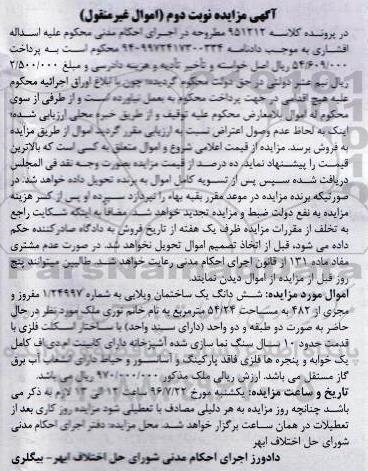 آگهی مزایده نوبت دوم (اموال غیرمنقول)
در پرونده کلاسه ۹۵۱۲۱۲ مطروحه در اجرای احکام مدنی محکوم علیه اسداله
افشاری به موجب دادنامه ۳۳۴-۹۴۰۹۹۷۲۴۱۷۳۰۰ محکوم است به پرداخت
۵۴/۶۰۹/۰۰۰ ریال اصل خواسته و تأخیر تأدیه و هزینه دادرسی و مبلغ ۲/۵۰۰/۰۰۰
ریال نیم عشر دولتی در حق دولت محکوم گردیده؛ چون با ابلاغ اوراق اجرائیه محکوم
علیه هیچ اقدامی در جهت پرداخت محکوم به بعمل نیاورده است و از طرفی از سوی
محکوم له اموال بلامعارض محکوم علیه توقیف و از طریق خبره محلی ارزیابی شده؛
اینک به لحاظ عدم وصول اعتراض نسبت به ارزیابی مقرر گردید اموال از طریق مزایده
به فروش برسد. مزایده از قیمت اعلامی شروع و اموال متعلق به کسی است که بالاترین
قیمت را پیشنهاد نماید. ده درصد از قیمت مزایده بصورت وجه نقد فی المجلس
دریافت شده سپس پس از تسویه کامل اموال به برنده تحویل داده خواهد شد. در
صورتیکه برنده مزایده در موعد مقرر بقیه بهاء را نپردازد سپرده او پس از کسر هزینه
مزایده به نفع دولت ضبط و مزایده تجدید خواهد شد. مضافا به اینکه شکایت راجع
به تخلف از مقررات مزایده ظرف یک هفته از تاریخ فروش به دادگاه صادرکننده حکم
داده می شود، قبل از اتخاذ تصمیم اموال تحویل نخواهد شد. در صورت عدم مشتری
مفاد ماده ۱۳۱ از قانون اجرای احکام مدنی رعایت خواهد شد. طالبین میتوانند پنج
روز قبل از مزایده از اموال دیدن نمایند.
اموال مورد مزایده: شش دانگ یک ساختمان ویلایی به شماره ۱/۲۴۹۹۷ مفروز و
مجزی از ۴۸۲ به مساحت ۵۴/۲۴ مترمربع به نام خانم نوری ملک مورد نظر در حال
حاضر به صورت دو طبقه و دو واحد (دارای سند واحد) با ساختار اسکلت فلزی با
قدمت حدود ۱۰ سال سنگ نما سازی شده آشپزخانه دارای کابینت ام.دی.اف کامل
یک خوابه و پنجره ها فلزی فاقد پارکینگ و آسانسور و حیاط دارای انشعاب آب برق
گاز مستقل می باشد. ارزش ریالی ملک مذکور ۹۷۰/۰۰۰/۰۰۰ ریال می باشد.
تاریخ و ساعت مزایده: یکشنبه مورخ ۹۶/۷/۲۳ ساعت ۱۲ الی ۱۳ لازم به ذکر می
باشد چنانچه روز مزایده به هر دلیلی مصادف با تعطیلی شود مزایده روز کاری بعد از
تعطیلات در همان ساعت برگزار خواهد شد. محل مزایده: دفتر اجرای احکام مدنی
شورای حل اختلاف ابهر
دادورز اجرای احکام مدنی شورای حل اختلاف ابهر- بیگلری